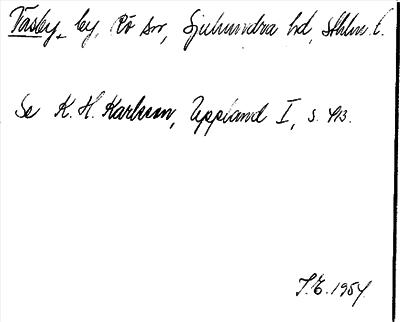 Väsby, by, Rö sn, Sjuhundra hd, Sthlm l.
Se K. H. Karlsson, Uppland I, s. 413.
T. E. 1954.